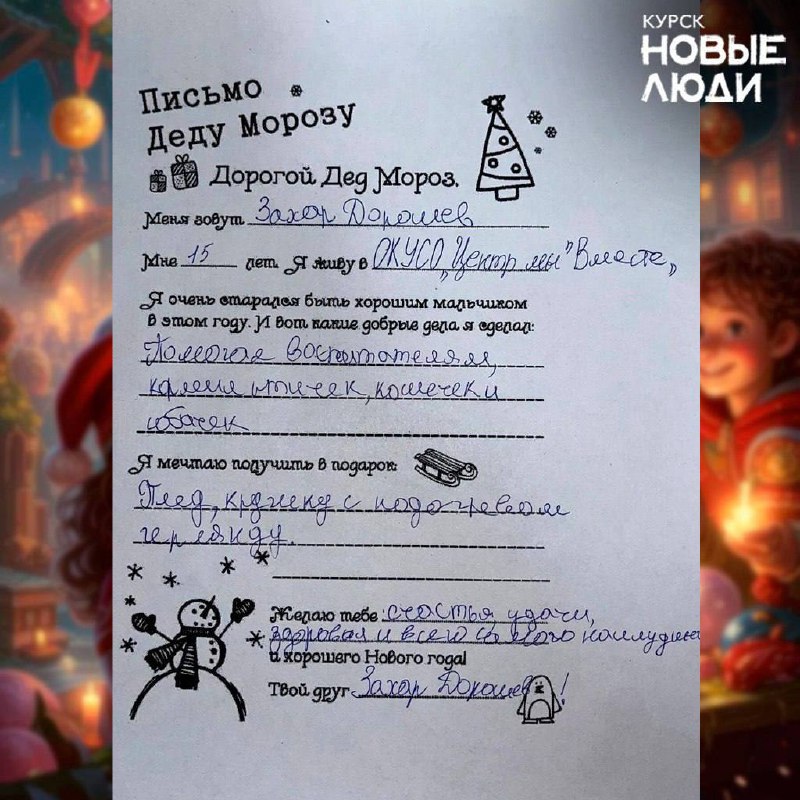 КУРСК
НОВЫЕ
ЛЮДИ
Письмо
Деду Морозу
Дорогой Дед Мороз.
Меня зовут Захар Дорошев
Мне 15 лет. Я живу в ОКУСО „Центр мы" Вместе„
Я очень старался быть хорошим мальчиком
в этом году. И вот какие добрые дела я сделал:
Помогал воспитателям,
кормил птичек, кошечек и
собачек
Я мечтаю получить в подарок:
Плед, кружку с подогревом
герлянду.
Желаю тебе: счастья удачи,
здоровая и всего наилучше
и хорошего Нового года!
Твой друг Захар Дорошев!